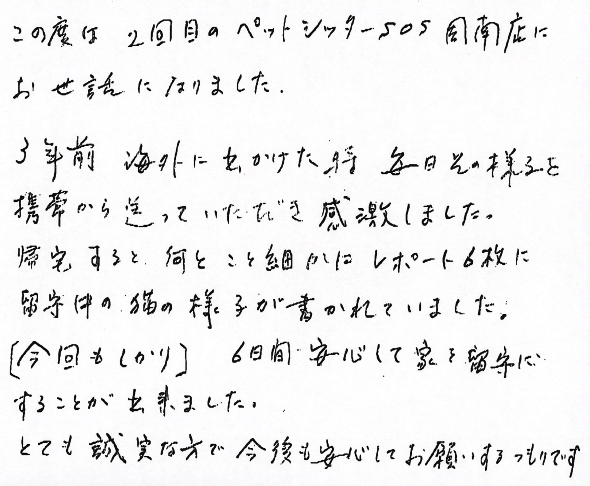 この度は 2回目のペットシッターSOS 周南店に
お世話になりました.
3年前 海外に出かけた時 毎日その様子を
携帯から送っていただき 感激しました。
帰宅すると、何とこと細かにレポート6枚に
留守中の猫の様子が書かれていました。
[今回もしかり] 6日間 安心して家を留守に
することが出来ました。
とても誠実な方で 今後も安心してお願いするつもりです